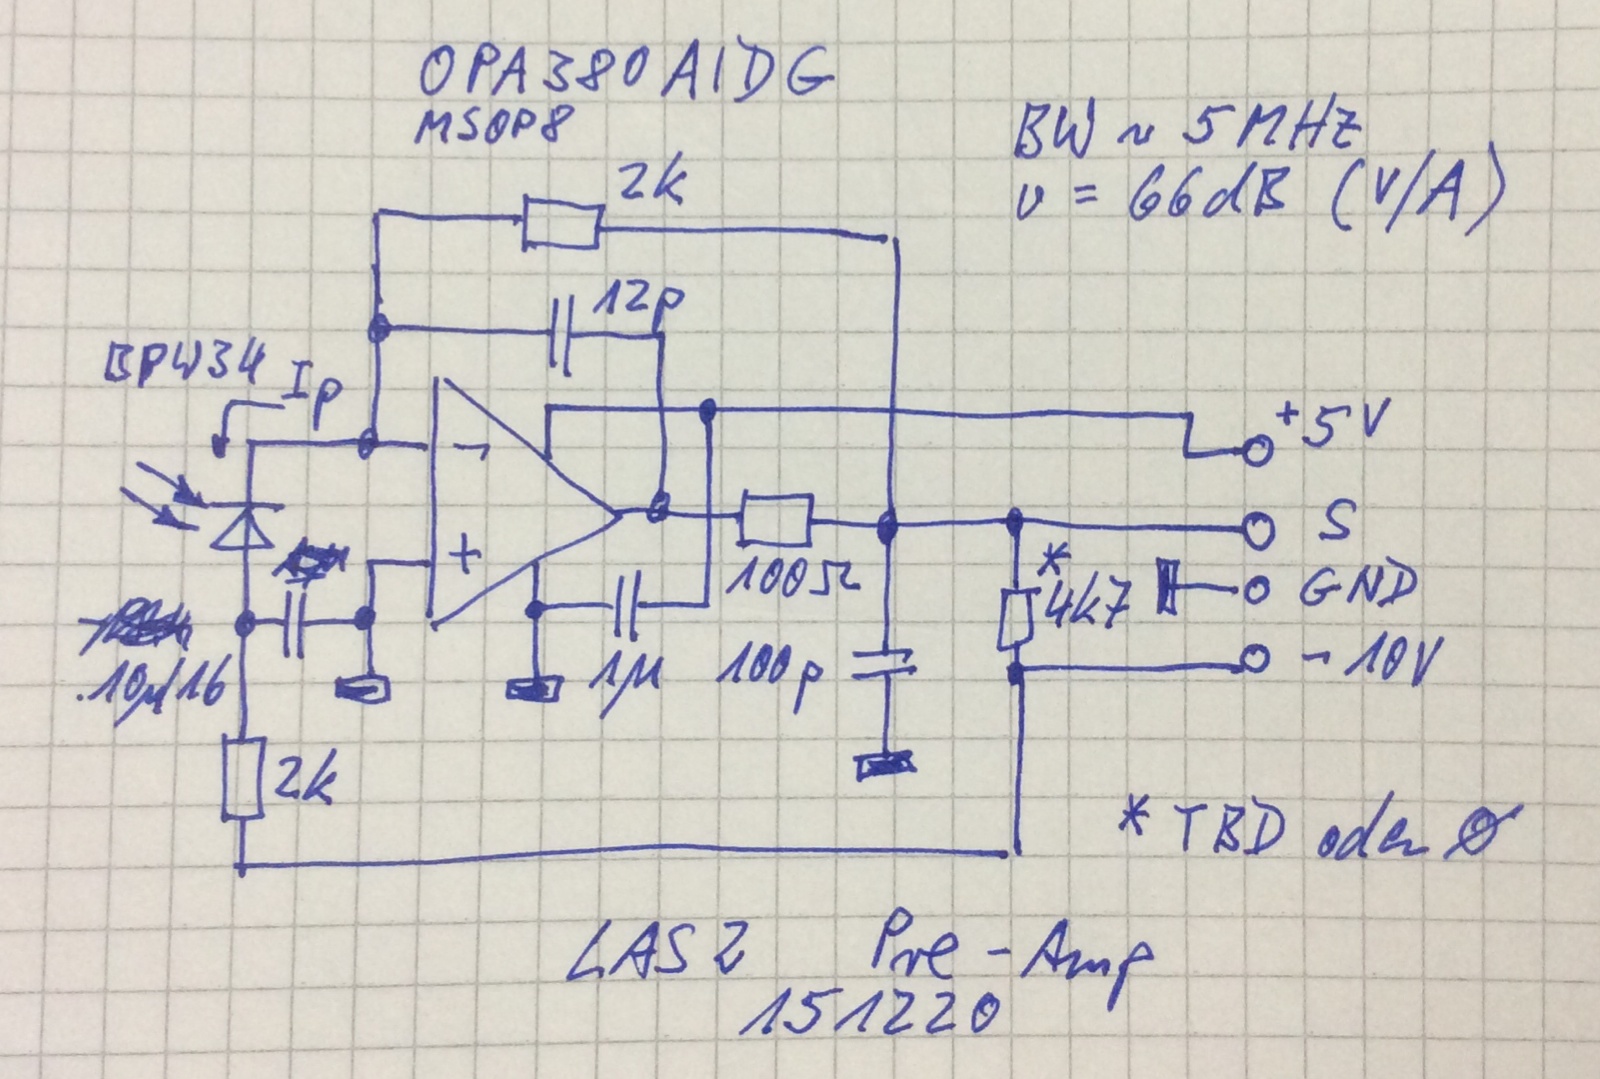 OPA380AIDG
MSOP8
BW ~ 5MHz
v = 66dB (V/A)
2k
12p
BPW34
Ip
+5V
-
+
S
100Ω
*
4k7
GND
10µ/16
1µ
100p
-10V
2k
* TBD oder Ø
LAS2 Pre-Amp
151220